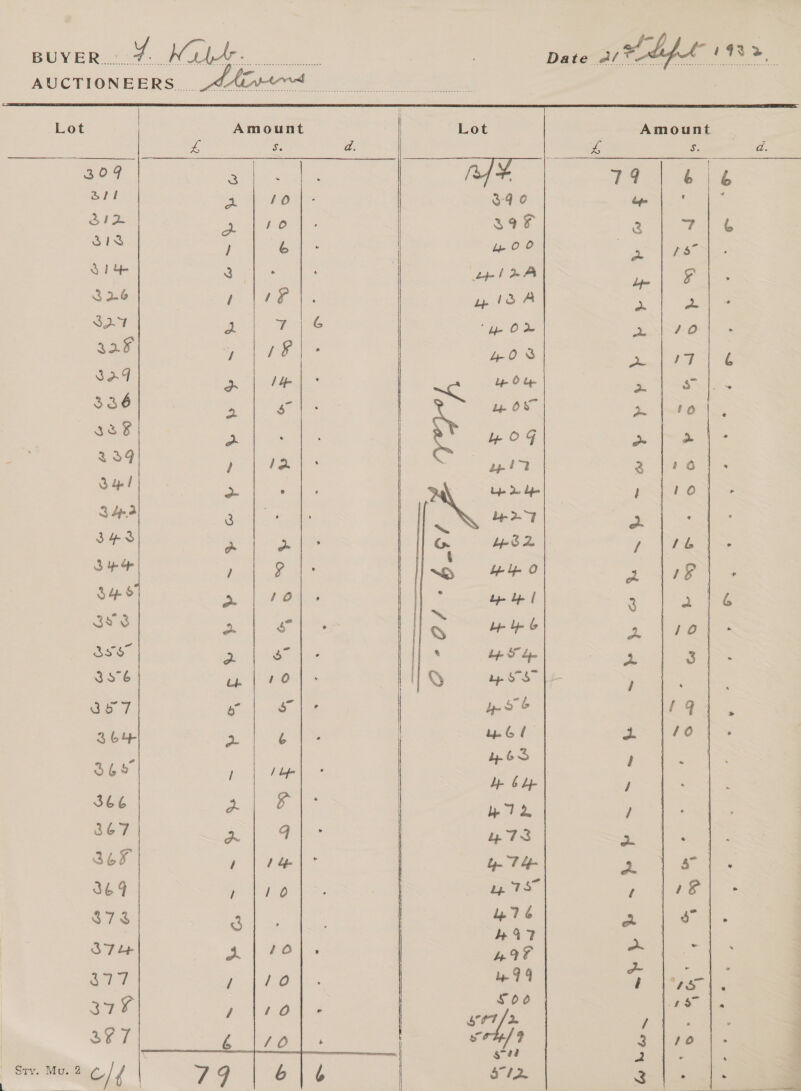 BUYER F. Webb. Date 21st Sept 1932.
AUCTIONEERS Stevens
Lot Amount Lot Amount
£ s. d. £ s. d.
309 3 - -
311 2 10 -
312 2 10 -
313 1 6 -
314 3 - -
326 1 18 -
327 2 7 6
328 1 18 -
329 2 14 -
336 2 5 -
338 2 - -
339 1 12 -
341 2 - -
342 3 - -
343 2 2 -
344 1 8 -
345 2 10 -
353 2 5 -
355 2 5 -
356 4 10 -
357 5 5 -
364 2 6 -
365 1 14 -
366 2 8 -
367 2 9 -
368 1 14 -
369 1 10 -
373 3 - -
374 2 10 -
377 1 10 -
378 1 10 -
387 6 10 -
Srv. Mu. 2 C/f 79 6 6
B/F. 79 6 6
390 4 - -
398 3 7 6
400 2 15 -
412A 4 8 -
413A 2 2 -
402 2 10 -
403 2 17 6
404 2 5 -
405 2 10 -
409 2 2 -
417 3 16 -
424 1 10 -
427 2 - -
432 1 16 -
440 2 18 -
441 3 2 6
446 2 10 -
454 2 3 -
455 1 - -
456 19 -
461 2 10 -
463 1 - -
464 1 - -
472 1 - -
473 2 - -
474 2 5 -
475 1 18 -
476 2 5 -
497 2 - -
498 2 - -
499 1 15 -
500 15 -
501/2 1 - -
504/9 3 10 -
511 2 - -
512 3 - -
Total £159.10.0